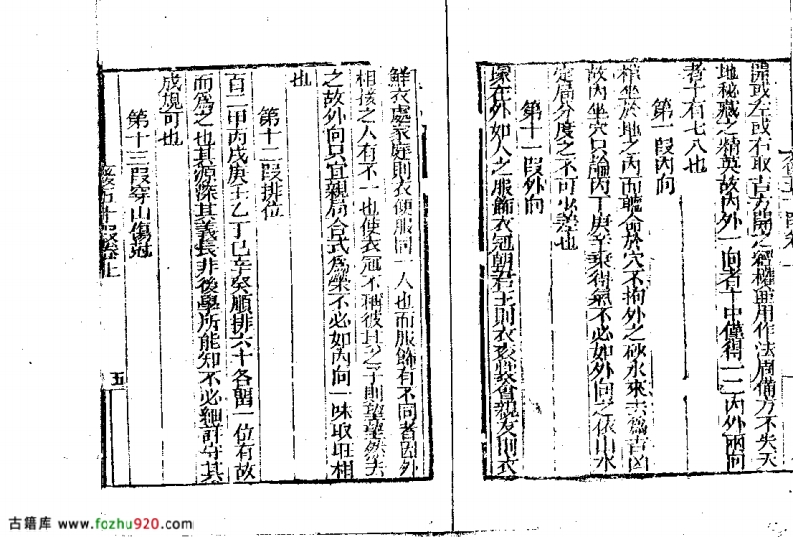 開或左或右取吉方開之經權並用作法周備方不失天
地秘藏之精英故內外一向者十中僅得一二內外兩向
者十有七八也
第一叚內向
棺坐於地之內而聽命於穴不拘外之砂水來去為吉凶
故內坐穴只論內丁庚辛乘得氣不必如外向之依山水
定局分度之不可必差也
第十一叚外向
在外如人之服飾衣冠朝君王則衣會親友則衣
鮮衣處家庭則衣便服同一人也而服飾有不同者因外
相接之人有不一也使衣冠不稱彼其之子則望望然去
之故外向只宜親局合式為樂不必如內向一味取旺相
也
第十二叚排位
百二甲丙戊庚壬乙丁己辛癸順排六十各留一位有故
而為之也其源深其義長非後學所能知不必細計守其
成規可也
第十三叚穿山傷冠
上
五
古籍库 www.fozhu920.com